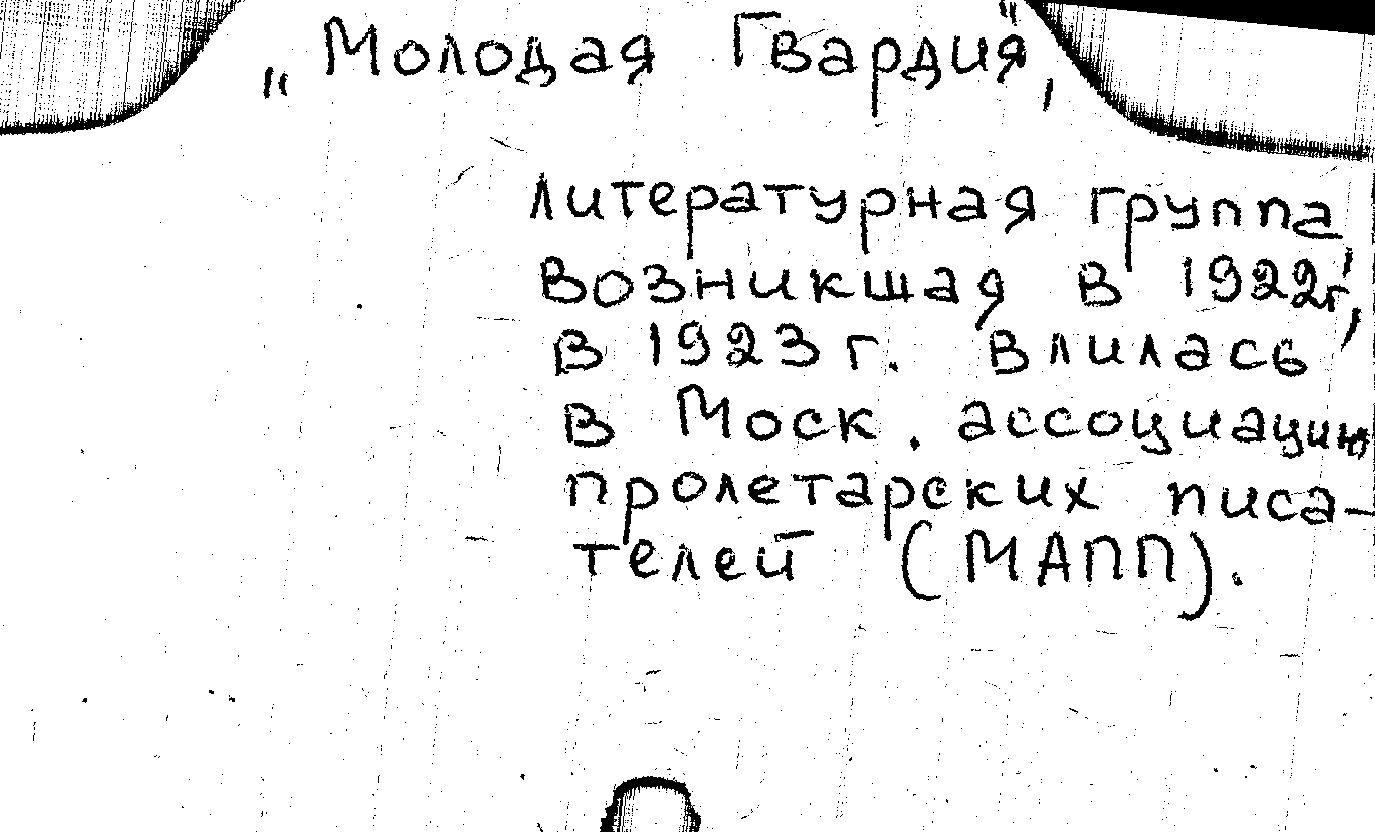 „Молодая Гвардия",
литературная группа,
возникшая в 1922г,
в 1923 г. влилась
в Моск. ассоциацию
пролетарских писа-
телей (МАПП).